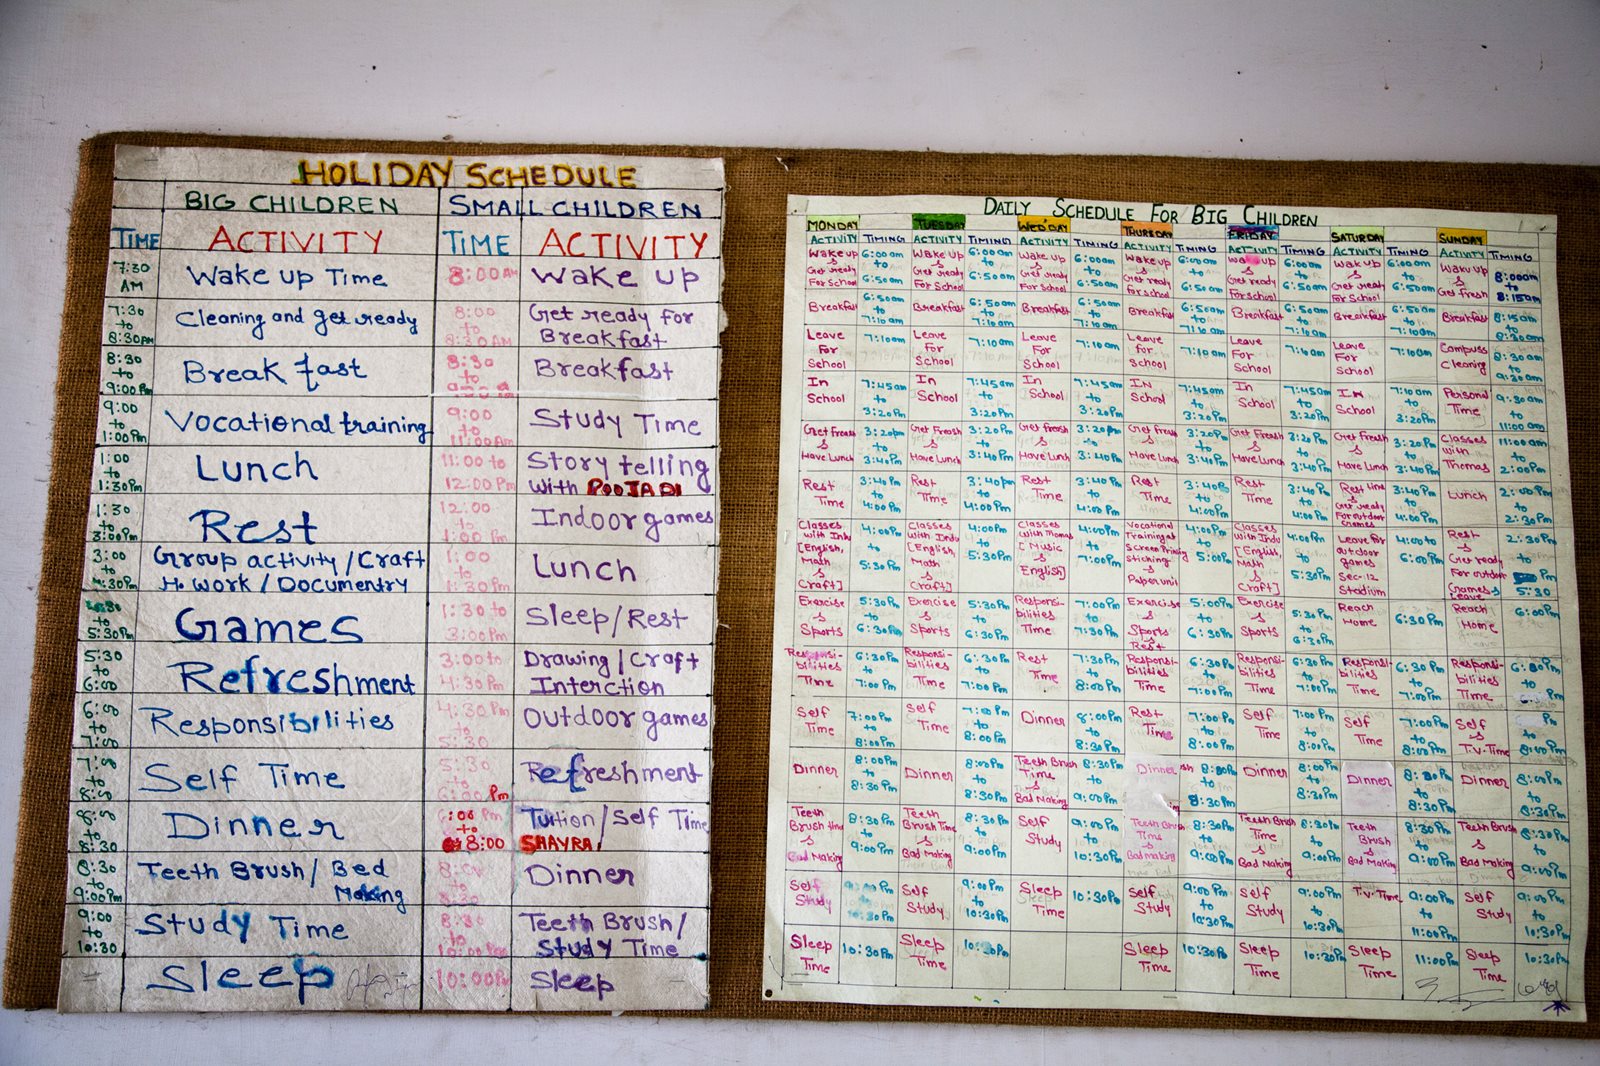 HOLIDAY SCHEDULE
BIG CHILDREN SMALL CHILDREN
TIME ACTIVITY TIME ACTIVITY
7:30 AM Wake up Time 8:00 AM Wake up
7:30 to 8:30AM Cleaning and get ready 8:00 to 8:30 AM Get ready for Breakfast
8:30 to 9:00 Pm Break fast 8:30 to Breakfast
9:00 to 1:00Pm Vocational training 9:00 to 11:00AM Study Time
1:00 to 1:30Pm Lunch 11:00 to 12:00 PM Story telling with POOJA DI
1:30 to 3:00Pm Rest 12:00 to 1:00 Pm Indoor games
3:00 to 4:30Pm Group activity / Craft H. Work / Documentry 1:00 to 1:30Pm Lunch
4:30 to 5:30Pm Games 1:30 to 3:00Pm Sleep/Rest
5:30 to 6:00 Refreshment 3:00 to 4:30Pm Drawing / Craft Interction
6:00 to 7:00 Responsibilities 4:30 Pm to 5:30 Outdoor games
to Self Time 5:30 to 6:00 Pm Refreshment
to 8:30 Dinner to 8:00 Tution / Self Time SHAYRA
8:30 to 9:00Pm Teeth Brush / Bed Making to 8:30 Dinner
9:00 to 10:30 Study Time 8:30 to Teeth Brush / Study Time
Sleep 10:00Pm Sleep
DAILY SCHEDULE FOR BIG CHILDREN
MONDAY TUESDAY WED'DAY THURSDAY FRIDAY SATURDAY SUNDAY
ACTIVITY TIMING ACTIVITY TIMING ACTIVITY TIMING ACTIVITY TIMING ACTIVITY TIMING ACTIVITY TIMING ACTIVITY TIMING
Wake up & Get ready For School 6:00am to 6:50am Wake up & Get ready For School 6:00am to 6:50am Wake up & Get ready For School 6:00am to 6:50am Wake up & Get ready For school 6:00am to 6:50am Wake up & Get ready For school 6:00am to 6:50am Wake up & Get ready For School 6:00am to 6:50am Wake up & Get fresh 8:00am to 8:15am
Breakfast 6:50am to 7:10am Breakfast 6:50am to 7:10am Breakfast 6:50am to 7:10am Breakfast 6:50am to 7:10am Breakfast 6:50am to 7:10am Breakfast 6:50am to 7:10am Breakfast 8:15am to 8:30am
Leave For School 7:10am Leave For School 7:10am Leave For School 7:10am Leave for School 7:10am Leave For School 7:10am Leave For School 7:10am Campuss Cleaning 8:30am to 9:30am
In School 7:45am to 3:20Pm In School 7:45am to 3:20Pm In School 7:45am to 3:20Pm In School 7:45am to 3:20Pm In School 7:45am to 3:20Pm In School 7:10am to 3:20Pm Personal Time 9:30am to 11:00am
Get Freash & Have Lunch 3:20pm to 3:40Pm Get freash & Have Lunch 3:20Pm to 3:40Pm Get freash & Have Lunch 3:20Pm to 3:40Pm Get fresh & Have Lunch 3:20Pm to 3:40Pm Get Freash & Have Lunch 3:20Pm to 3:40Pm Get Freash & Have Lunch 3:20Pm to 3:40Pm Classes with Thomas 11:00am to 2:00Pm
Rest Time 3:40Pm to 4:00Pm Rest Time 3:40pm to 4:00Pm Rest Time 3:40Pm to 4:00Pm Rest Time 3:40Pm to 4:00Pm Rest Time 3:40Pm to 4:00Pm Rest time & Get ready For outdoor Games 3:40Pm to 4:00Pm Lunch 2:00Pm to 2:30Pm
Classes with Indu [English, Math & Craft] 4:00Pm to 5:30Pm Classes with Indu [English, Math & Craft] 4:00Pm to 5:30Pm Classes with Thomas [Music & English] 4:00Pm to 7:00Pm Vocational Training at Screen Printing Stiching & Paper unit 4:00Pm to 5:00Pm Classes with Indu [English, Math & Craft] 4:00Pm to 5:30Pm Leave for outdoor games Sec-12 Stadium 4:00Pm to 6:00Pm Rest & Get ready For outdoor Games & Leave 2:30Pm Pm 5:30
Exercise & Sports 5:30Pm to 6:30Pm Exercise & Sports 5:30Pm to 6:30Pm Responsibilities Time 7:00Pm to 7:30Pm Exercise & Sports & Rest 5:00Pm to 6:30Pm Exercise & Sports 5:30Pm to 6:30Pm Reach Home 6:30Pm Reach Home 6:00Pm
Responsibilities Time 6:30Pm to 7:00Pm Responsibilities Time 6:30Pm to 7:00Pm Rest Time 7:30Pm to 8:00Pm Responsibilities Time 6:30Pm to 7:00Pm Responsibilities Time 6:30Pm to 7:00Pm Responsibilities Time 6:30Pm to 7:00Pm Responsibilities Time 6:30Pm to Pm
Self Time 7:00Pm to 8:00Pm Self Time 7:00Pm to 8:00Pm Dinner 8:00Pm to 8:30Pm Rest Time 7:00Pm to 8:00Pm Self Time 7:00Pm to 8:00Pm Self Time 7:00Pm to 8:00Pm Self & T.V. Time Pm to 8:00Pm
Dinner 8:00Pm to 8:30Pm Dinner 8:00Pm to 8:30Pm Teeth Brush Time & Bad Making 8:30Pm to 9:00Pm Dinner 8:00Pm to 8:30Pm Dinner 8:00Pm to 8:30Pm Dinner 8:00Pm to 8:30Pm Dinner 8:00Pm to 8:30Pm
Teeth Brush time & Bad Making 8:30Pm to 9:00Pm Teeth Brush Time & Bad Making 8:30Pm to 9:00Pm Self Study 9:00Pm to 10:30Pm Teeth Brush Time & Bad making 8:30Pm to 9:00Pm Teeth Brush Time & Bad Making 8:30Pm to 9:00Pm Teeth Brush & Bad Making 8:30Pm to 9:00Pm Teeth Brush & Bad Making 8:30Pm to 9:00Pm
Self Study 9:00Pm to 10:30Pm Self Study 9:00Pm to 10:30Pm Sleep Time 10:30Pm Self Study 9:00Pm to 10:30Pm Self Study 9:00Pm to 10:30Pm T.V. Time 9:00Pm to 11:00Pm Self Study 9:00Pm to 10:30Pm
Sleep Time 10:30Pm Sleep Time 10:30 Sleep Time 10:30Pm Sleep Time 10:30Pm Sleep Time 11:00Pm Sleep Time 10:30Pm